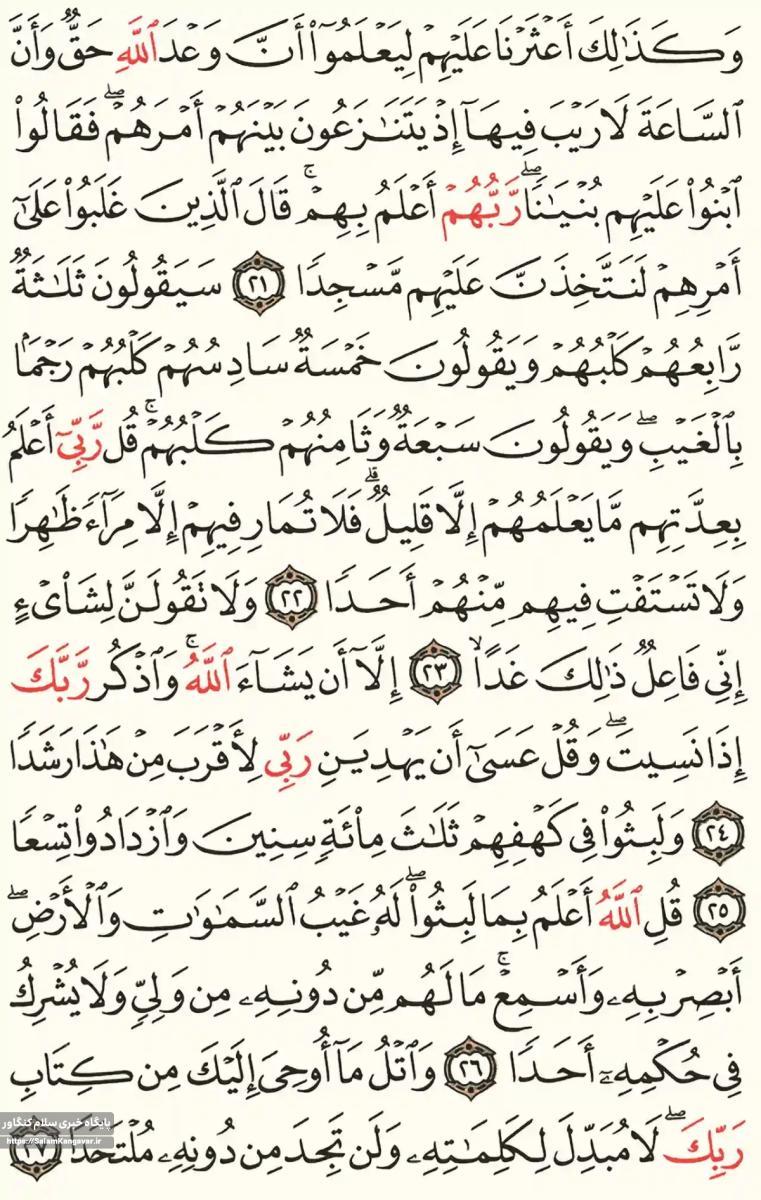 وَكَذَٰلِكَ أَعْثَرْنَا عَلَيْهِمْ لِيَعْلَمُوٓا۟ أَنَّ وَعْدَ ٱللَّهِ حَقٌّ وَأَنَّ
ٱلسَّاعَةَ لَا رَيْبَ فِيهَآ إِذْ يَتَنَٰزَعُونَ بَيْنَهُمْ أَمْرَهُمْ ۖ فَقَالُوا۟
ٱبْنُوا۟ عَلَيْهِم بُنْيَٰنًا ۖ رَّبُّهُمْ أَعْلَمُ بِهِمْ ۚ قَالَ ٱلَّذِينَ غَلَبُوا۟ عَلَىٰٓ
أَمْرِهِمْ لَنَتَّخِذَنَّ عَلَيْهِم مَّسْجِدًا ٢١ سَيَقُولُونَ ثَلَٰثَةٌ
رَّابِعُهُمْ كَلْبُهُمْ وَيَقُولُونَ خَمْسَةٌ سَادِسُهُمْ كَلْبُهُمْ رَجْمًۢا
بِٱلْغَيْبِ ۖ وَيَقُولُونَ سَبْعَةٌ وَثَامِنُهُمْ كَلْبُهُمْ ۚ قُل رَّبِّىٓ أَعْلَمُ
بِعِدَّتِهِم مَّا يَعْلَمُهُمْ إِلَّا قَلِيلٌ ۗ فَلَا تُمَارِ فِيهِمْ إِلَّا مِرَآءً ظَٰهِرًا
وَلَا تَسْتَفْتِ فِيهِم مِّنْهُمْ أَحَدًا ٢٢ وَلَا تَقُولَنَّ لِشَا۟ىْءٍ
إِنِّى فَاعِلٌ ذَٰلِكَ غَدًا ٢٣ إِلَّآ أَن يَشَآءَ ٱللَّهُ ۚ وَٱذْكُر رَّبَّكَ
إِذَا نَسِيتَ ۖ وَقُلْ عَسَىٰٓ أَن يَهْدِيَنِ رَبِّى لِأَقْرَبَ مِنْ هَٰذَا رَشَدًا
٢٤ وَلَبِثُوا۟ فِى كَهْفِهِمْ ثَلَٰثَ مِا۟ئَةٍ سِنِينَ وَٱزْدَادُوا۟ تِسْعًا
٢٥ قُلِ ٱللَّهُ أَعْلَمُ بِمَا لَبِثُوا۟ ۖ لَهُۥ غَيْبُ ٱلسَّمَٰوَٰتِ وَٱلْأَرْضِ ۖ
أَبْصِرْ بِهِۦ وَأَسْمِعْ ۚ مَا لَهُم مِّن دُونِهِۦ مِن وَلِىٍّ وَلَا يُشْرِكُ
فِى حُكْمِهِۦٓ أَحَدًا ٢٦ وَٱتْلُ مَآ أُوحِىَ إِلَيْكَ مِن كِتَابِ
رَبِّكَ ۖ لَا مُبَدِّلَ لِكَلِمَٰتِهِۦ وَلَن تَجِدَ مِن دُونِهِۦ مُلْتَحَدًا ٢٧
پایگاه خبری سلام کنگاور
https://SalamKangavar.ir